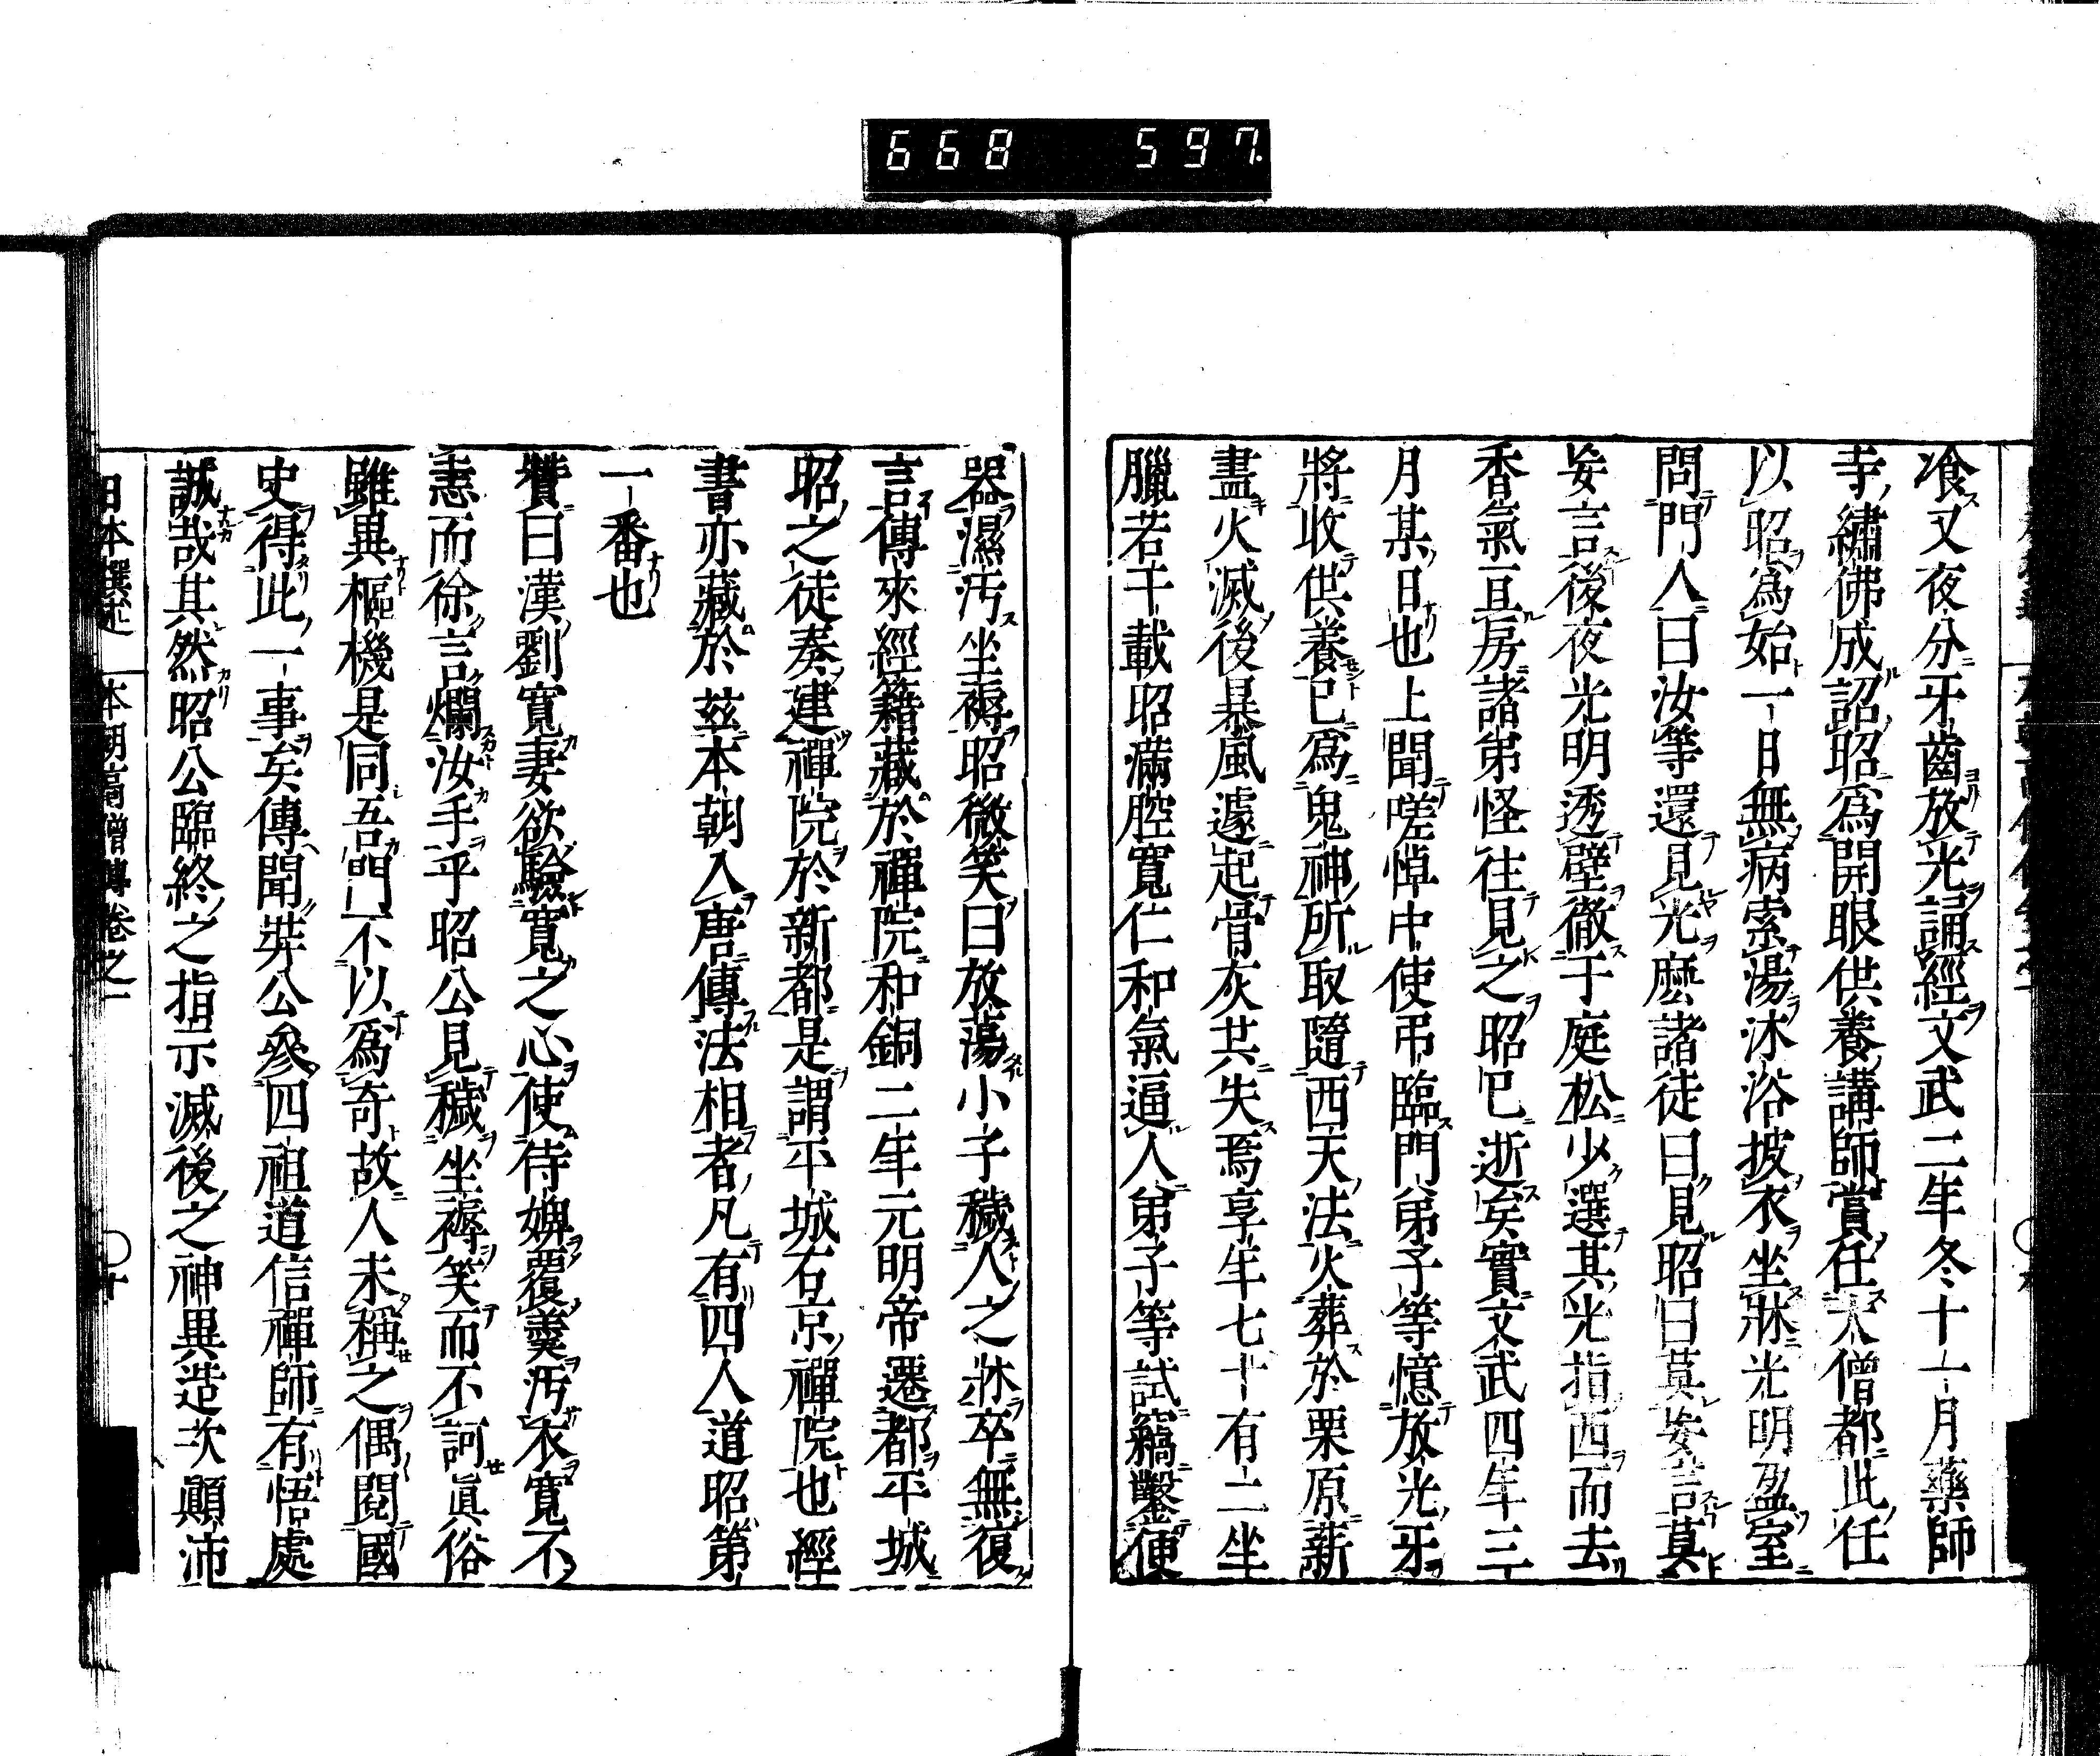 668 597.
飡又夜分牙齒放光誦經文武二年冬十一月藥師
寺繡佛成詔昭爲開眼供養講師賞任大僧都此任
以昭爲始一日無病索湯沐浴披衣坐牀光明盈室
問門人曰汝等還見光麽諸徒曰見昭曰莫妄言莫
妄言後夜光明透壁徹于庭松少選其光指西而去
香氣亘房諸弟怪往見之昭已逝矣實文武四年三
月某日也上聞嗟悼中使弔臨門弟子等憶放光牙
將收供養已爲鬼神所取隨西天法火葬於栗原薪
盡火滅後暴風遽起骨灰共失焉享年七十有二坐
臘若干載昭滿腔寬仁和氣逼人弟子等試竊鑿便
器濕汚坐褥昭微笑曰放蕩小子穢人之牀卒無復
言傳來經籍藏於禪院和銅二年元明帝遷都平城
昭之徒奏建禪院於新都是謂平城右京禪院也經
書亦藏於茲本朝入唐傳法相者凡有四人道昭第
一番也
贊曰漢劉寬妻欲驗寬之心使侍婢覆羹汚衣寬不
恚而徐言爛汝手乎昭公見穢坐褥笑而不訶眞俗
雖異樞機是同吾門不以爲奇故人未稱之偶閱國
史得此一事矣傳聞奘公參四祖道信禪師有悟處
誠哉其然昭公臨終之指示滅後之神異造次顚沛
日本撰述 本朝高僧傳卷之一 〇十